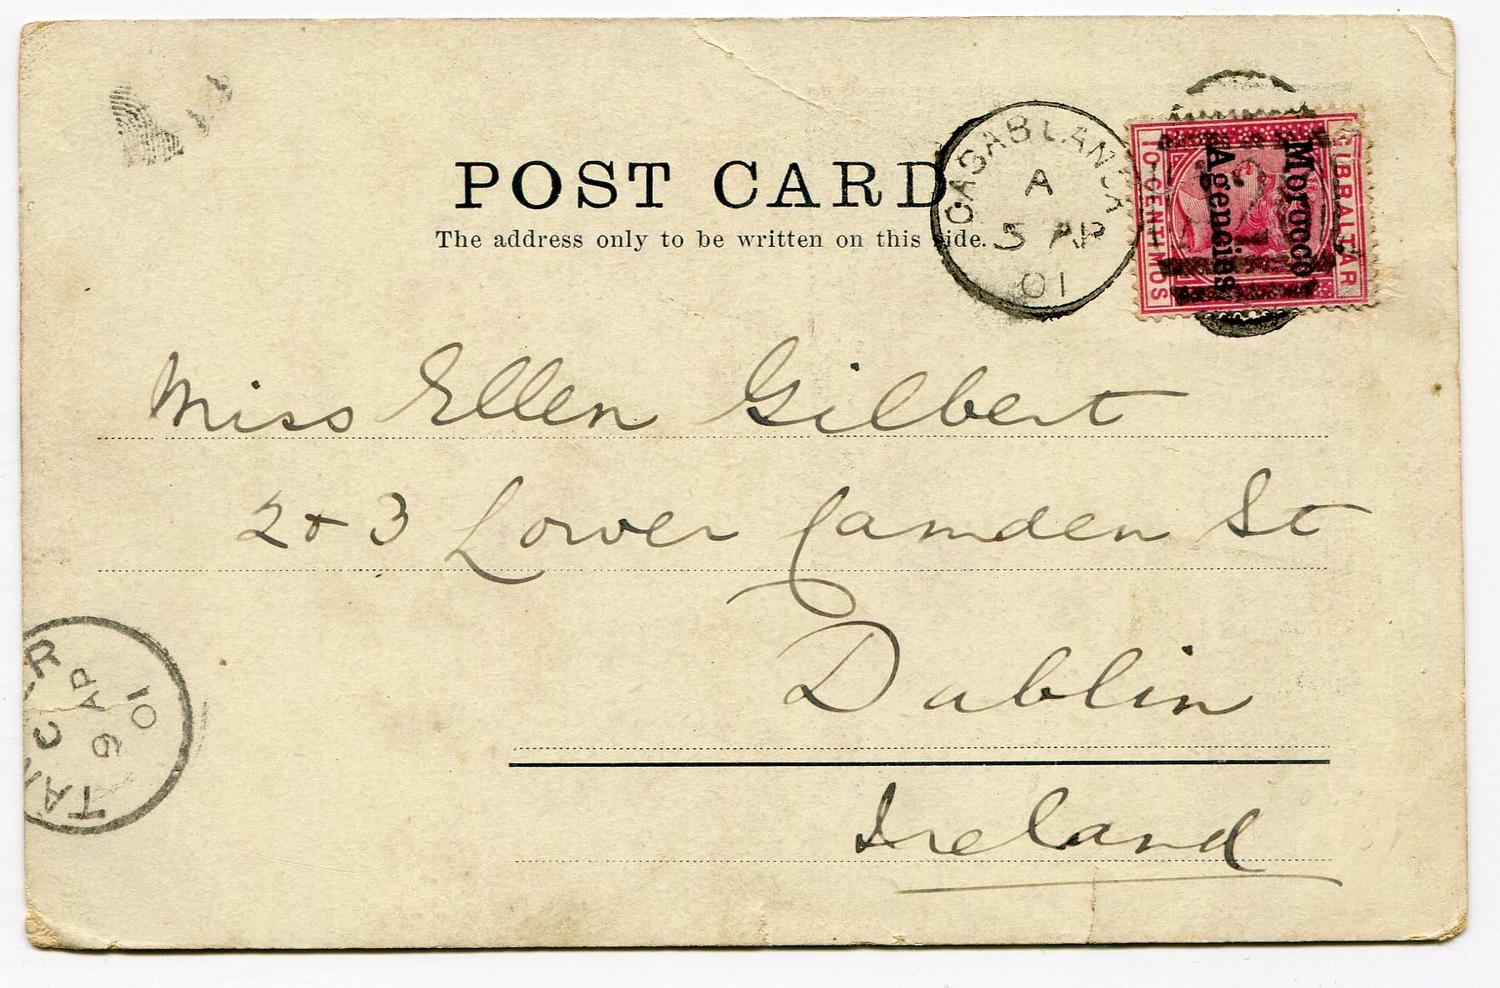 POST CARD
The address only to be written on this side.
CASABLANCA
A
5 AP
01
GIBRALTAR
Morocco
Agencies
10 CENTIMOS
Miss Ellen Gilbert
2 & 3 Lower Camden St
Dublin
Ireland
TANGIER
9 AP
01